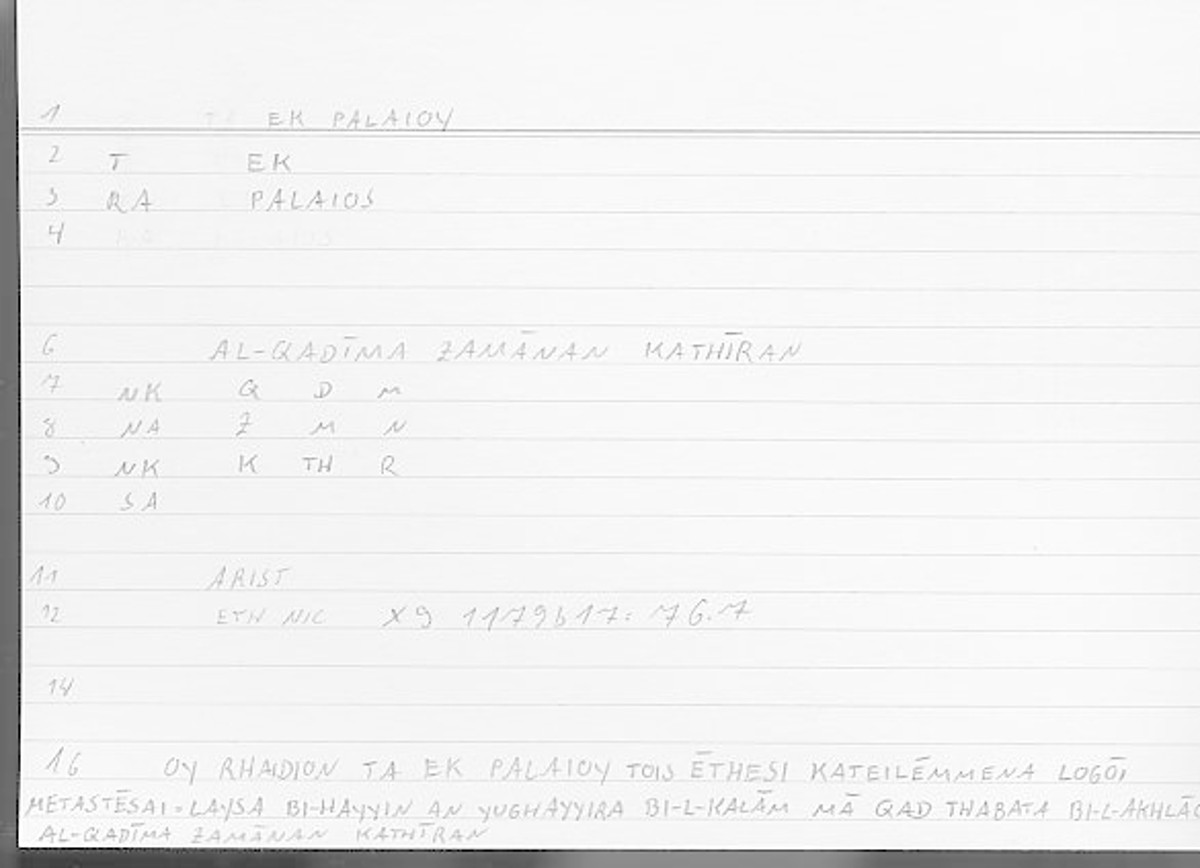 1 EK PALAIOY
2 T EK
3 RA PALAIOS
4
6 AL-QADĪMA ZAMĀNAN KATHĪRAN
7 NK Q D M
8 NA Z M N
9 NK K TH R
10 SA
11 ARIST
12 ETH NIC X9 1179b17: 76.7
14
16 OY RHAIDION TA EK PALAIOY TOIS ĒTHESI KATEILĒMMENA LOGŌI
METASTĒSAI = LAYSA BI-HAYYIN AN YUGHAYYIRA BI-L-KALĀM MĀ QAD THABATA BI-L-AKHLĀQ
AL-QADĪMA ZAMĀNAN KATHĪRAN